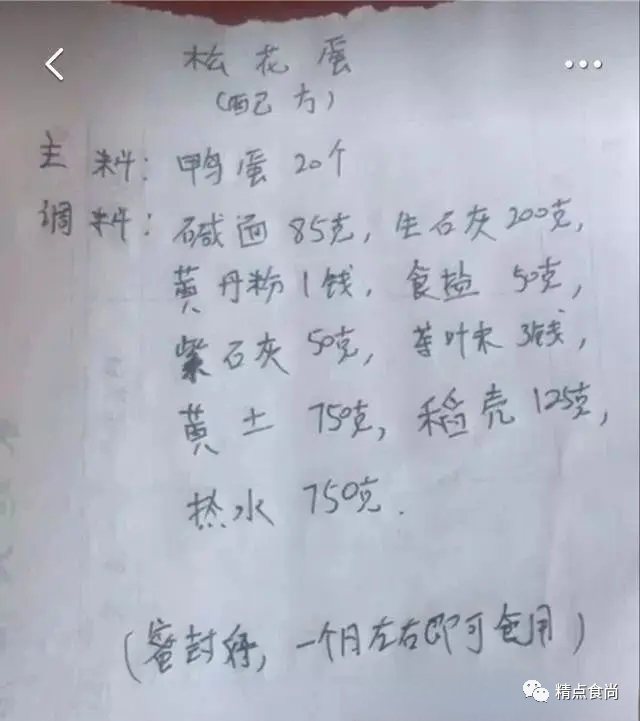 松花蛋
(配方)
主料：鸭蛋20个
调料：碱面85克，生石灰200克，
黄丹粉1钱，食盐50克，
紫石灰50克，茶叶末3钱，
黄土750克，稻壳125克，
热水750克.
(密封好，一个月左右即可食用)
精点食尚